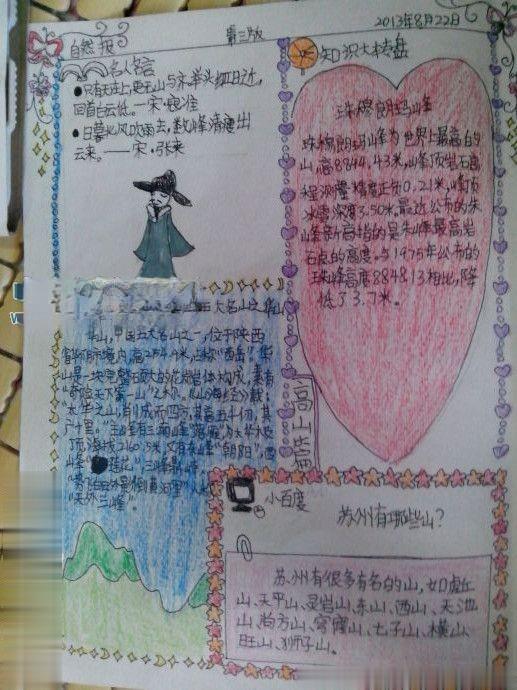 自然报
第三版
2013年8月22日
名人名言
●只有天在上,更无山与齐.举头红日近,
回首白云低。—宋·寇准
●日暮北风吹雨去,数峰清瘦出
云来。——宋·张耒
知识大转盘
珠穆朗玛峰
珠穆朗玛峰为世界上最高的
山,高8844.43米,峰顶岩石面
程测量精度正负0.21米,峰顶
冰雪深度3.50米.最近公布的珠
峰新高指的是珠峰最高岩
石点的高度。与1975年公布的
珠峰高度8848.13相比,降
低了3.7米。
大名山之
华山,中国五大名山之一,位于陕西
境内,高2154.9米,古称"西岳".华
山是一块完整硕大的花岗岩体构成,素有
"奇险天下第一山"之称。《山海经》载:
"太华之山,削成而四方,其高五千仞,其
广十里。"
"天外三峰"
高山篇
小百度
苏州有哪些山?
苏州有很多有名的山,如虎丘
山、天平山、灵岩山、东山、西山、天池
山、尚方山、穹窿山、七子山、横山、
旺山、狮子山。